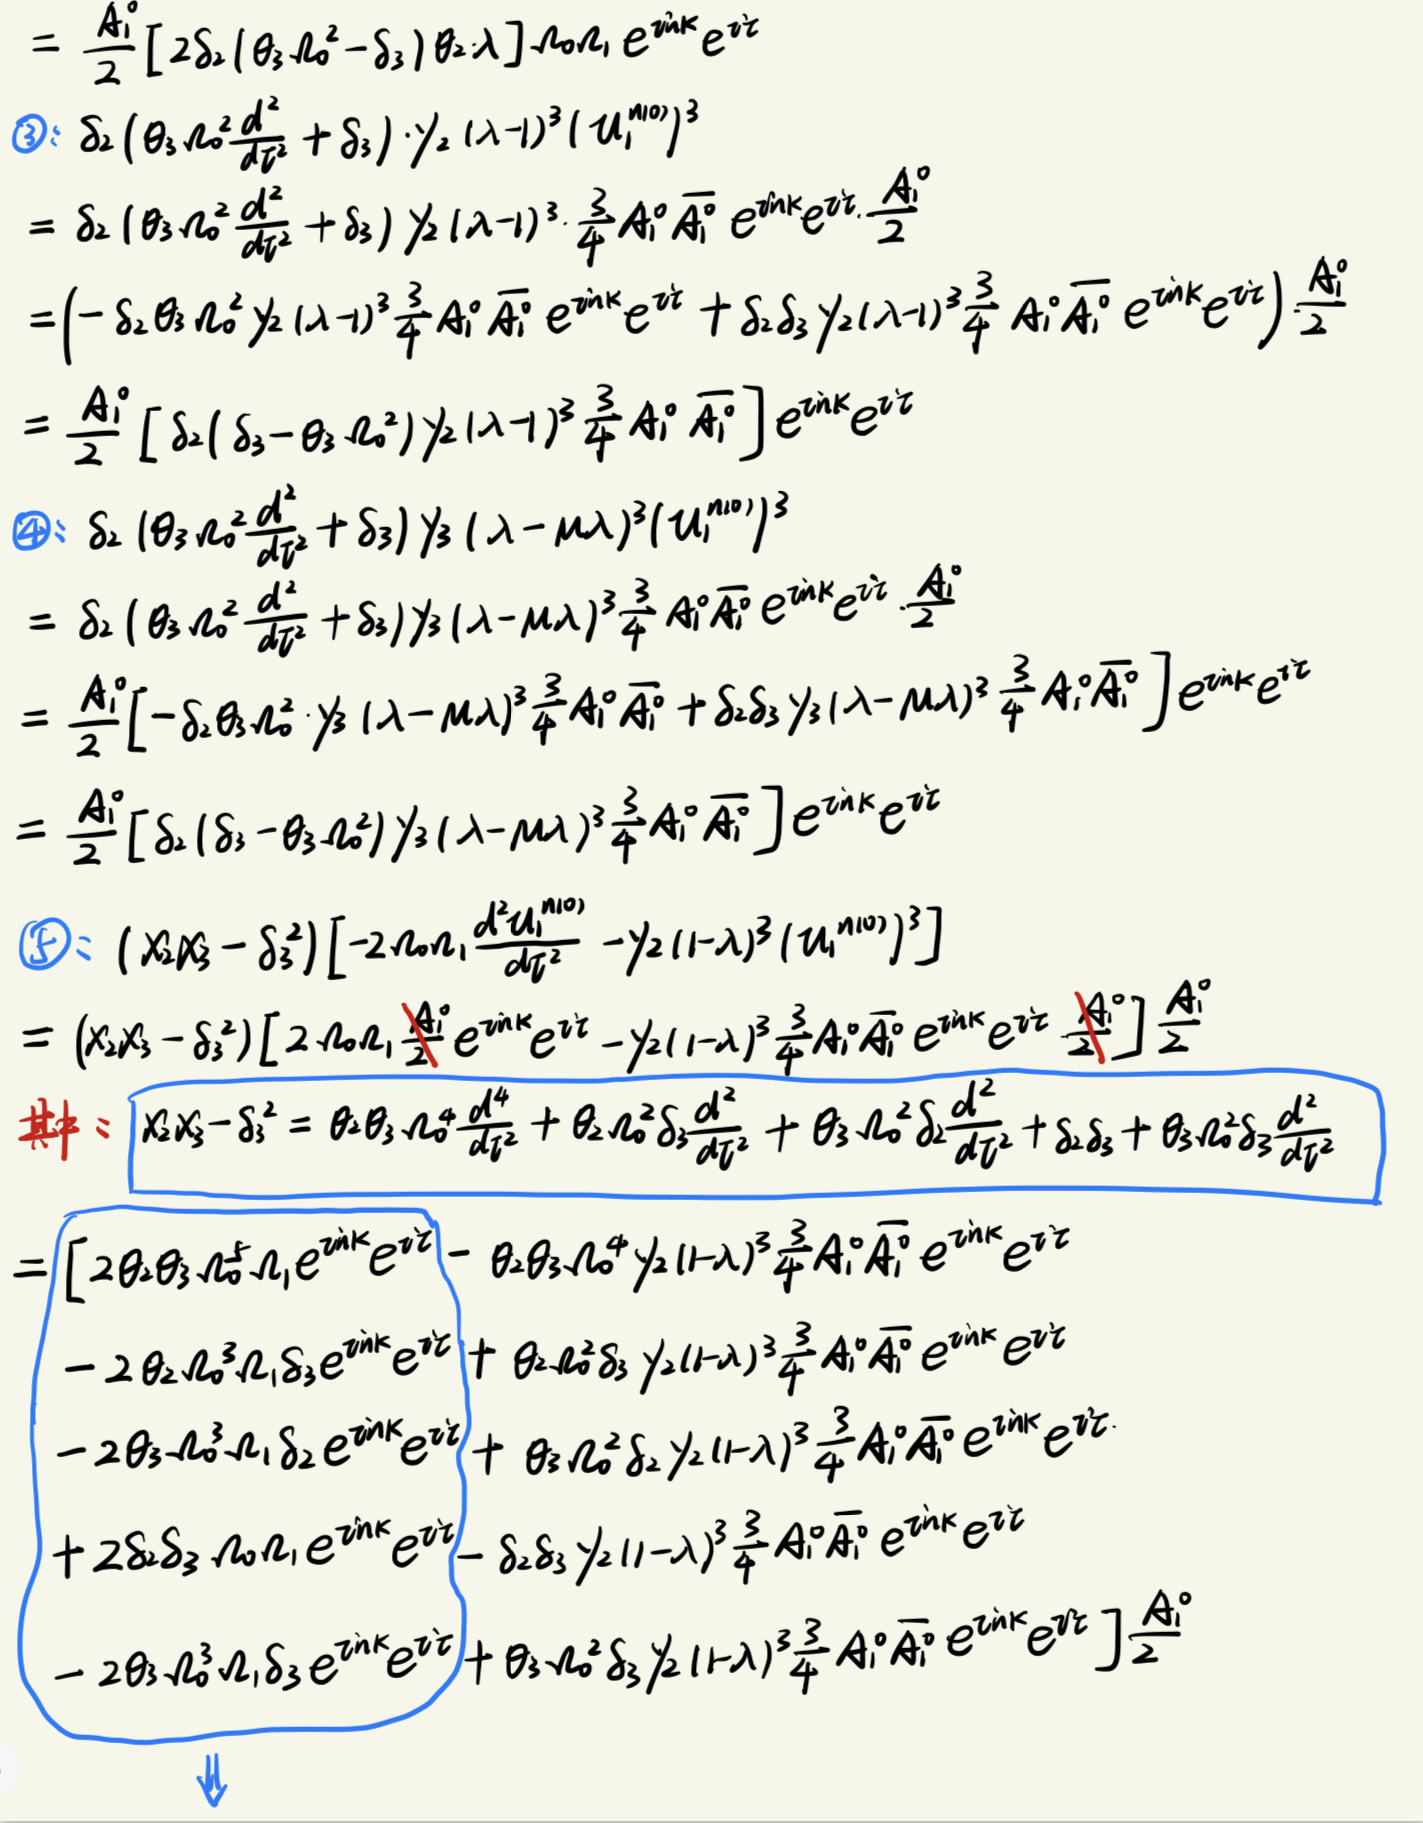 = A₁⁰/2 [2δ₂(θ₃Ω₀²-δ₃)θ₂·λ]Ω₀Ω₁ e^{inκ}e^{iτ}
③: δ₂(θ₃Ω₀² d²/dτ² + δ₃)·γ₂(λ-1)³(u₁^{n(0)})³
= δ₂(θ₃Ω₀² d²/dτ² + δ₃)γ₂(λ-1)³·3/4 A₁⁰Ā₁⁰ e^{inκ}e^{iτ}·A₁⁰/2
= (-δ₂θ₃Ω₀²γ₂(λ-1)³ 3/4 A₁⁰Ā₁⁰ e^{inκ}e^{iτ} + δ₂δ₃γ₂(λ-1)³ 3/4 A₁⁰Ā₁⁰ e^{inκ}e^{iτ})·A₁⁰/2
= A₁⁰/2 [δ₂(δ₃-θ₃Ω₀²)γ₂(λ-1)³ 3/4 A₁⁰Ā₁⁰] e^{inκ}e^{iτ}
④: δ₂(θ₃Ω₀² d²/dτ² + δ₃)γ₃(λ-μλ)³(u₁^{n(0)})³
= δ₂(θ₃Ω₀² d²/dτ² + δ₃)γ₃(λ-μλ)³ 3/4 A₁⁰Ā₁⁰ e^{inκ}e^{iτ}·A₁⁰/2
= A₁⁰/2 [-δ₂θ₃Ω₀²·γ₃(λ-μλ)³ 3/4 A₁⁰Ā₁⁰ + δ₂δ₃γ₃(λ-μλ)³ 3/4 A₁⁰Ā₁⁰] e^{inκ}e^{iτ}
= A₁⁰/2 [δ₂(δ₃-θ₃Ω₀²)γ₃(λ-μλ)³ 3/4 A₁⁰Ā₁⁰] e^{inκ}e^{iτ}
⑤: (χ₂χ₃-δ₃²)[-2Ω₀Ω₁ d²u₁^{n(0)}/dτ² - γ₂(1-λ)³(u₁^{n(0)})³]
= (χ₂χ₃-δ₃²)[2Ω₀Ω₁ A₁⁰/2 e^{inκ}e^{iτ} - γ₂(1-λ)³ 3/4 A₁⁰Ā₁⁰ e^{inκ}e^{iτ} A₁⁰/2] A₁⁰/2
其中: χ₂χ₃-δ₃² = θ₂θ₃Ω₀⁴ d⁴/dτ² + θ₂Ω₀²δ₃ d²/dτ² + θ₃Ω₀²δ₂ d²/dτ² + δ₂δ₃ + θ₃Ω₀²δ₃ d²/dτ²
= [2θ₂θ₃Ω₀⁵Ω₁e^{inκ}e^{iτ} - θ₂θ₃Ω₀⁴γ₂(1-λ)³ 3/4 A₁⁰Ā₁⁰ e^{inκ}e^{iτ}
- 2θ₂Ω₀³Ω₁δ₃e^{inκ}e^{iτ} + θ₂Ω₀²δ₃γ₂(1-λ)³ 3/4 A₁⁰Ā₁⁰ e^{inκ}e^{iτ}
- 2θ₃Ω₀³Ω₁δ₂e^{inκ}e^{iτ} + θ₃Ω₀²δ₂γ₂(1-λ)³ 3/4 A₁⁰Ā₁⁰ e^{inκ}e^{iτ}.
+ 2δ₂δ₃Ω₀Ω₁e^{inκ}e^{iτ} - δ₂δ₃γ₂(1-λ)³ 3/4 A₁⁰Ā₁⁰ e^{inκ}e^{iτ}
- 2θ₃Ω₀³Ω₁δ₃e^{inκ}e^{iτ} + θ₃Ω₀²δ₃γ₂(1-λ)³ 3/4 A₁⁰Ā₁⁰ e^{inκ}e^{iτ}] A₁⁰/2